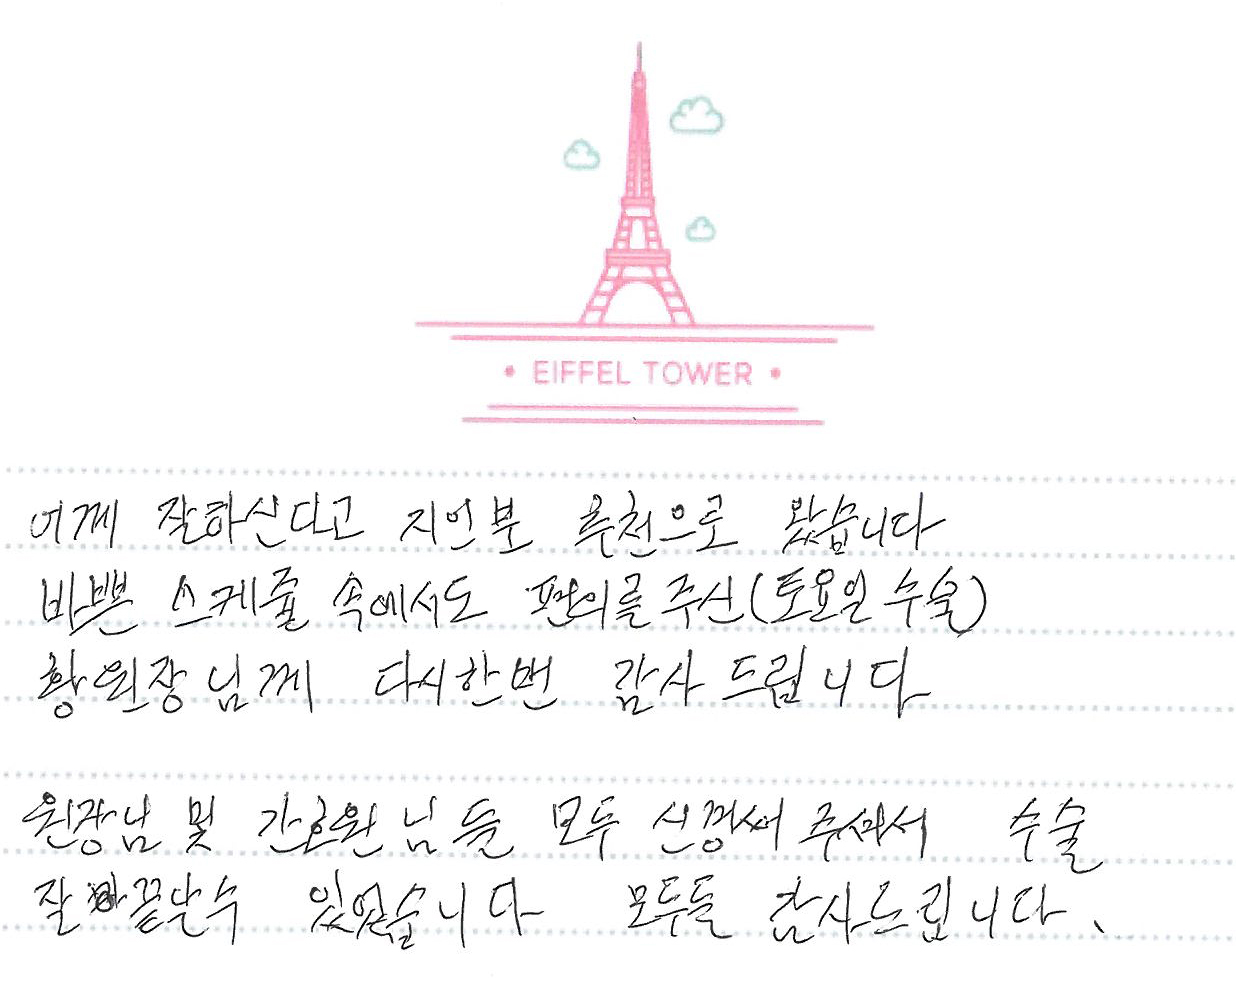 • EIFFEL TOWER •
어깨 잘하신다고 지인분 추천으로 왔습니다
바쁜 스케줄 속에서도 편의를 주신(토요일 수술)
황원장님께 다시한번 감사 드립니다
원장님 및 간호원님들 모두 신경써 주셔서 수술
잘 끝날수 있었습니다 모두들 감사드립니다.